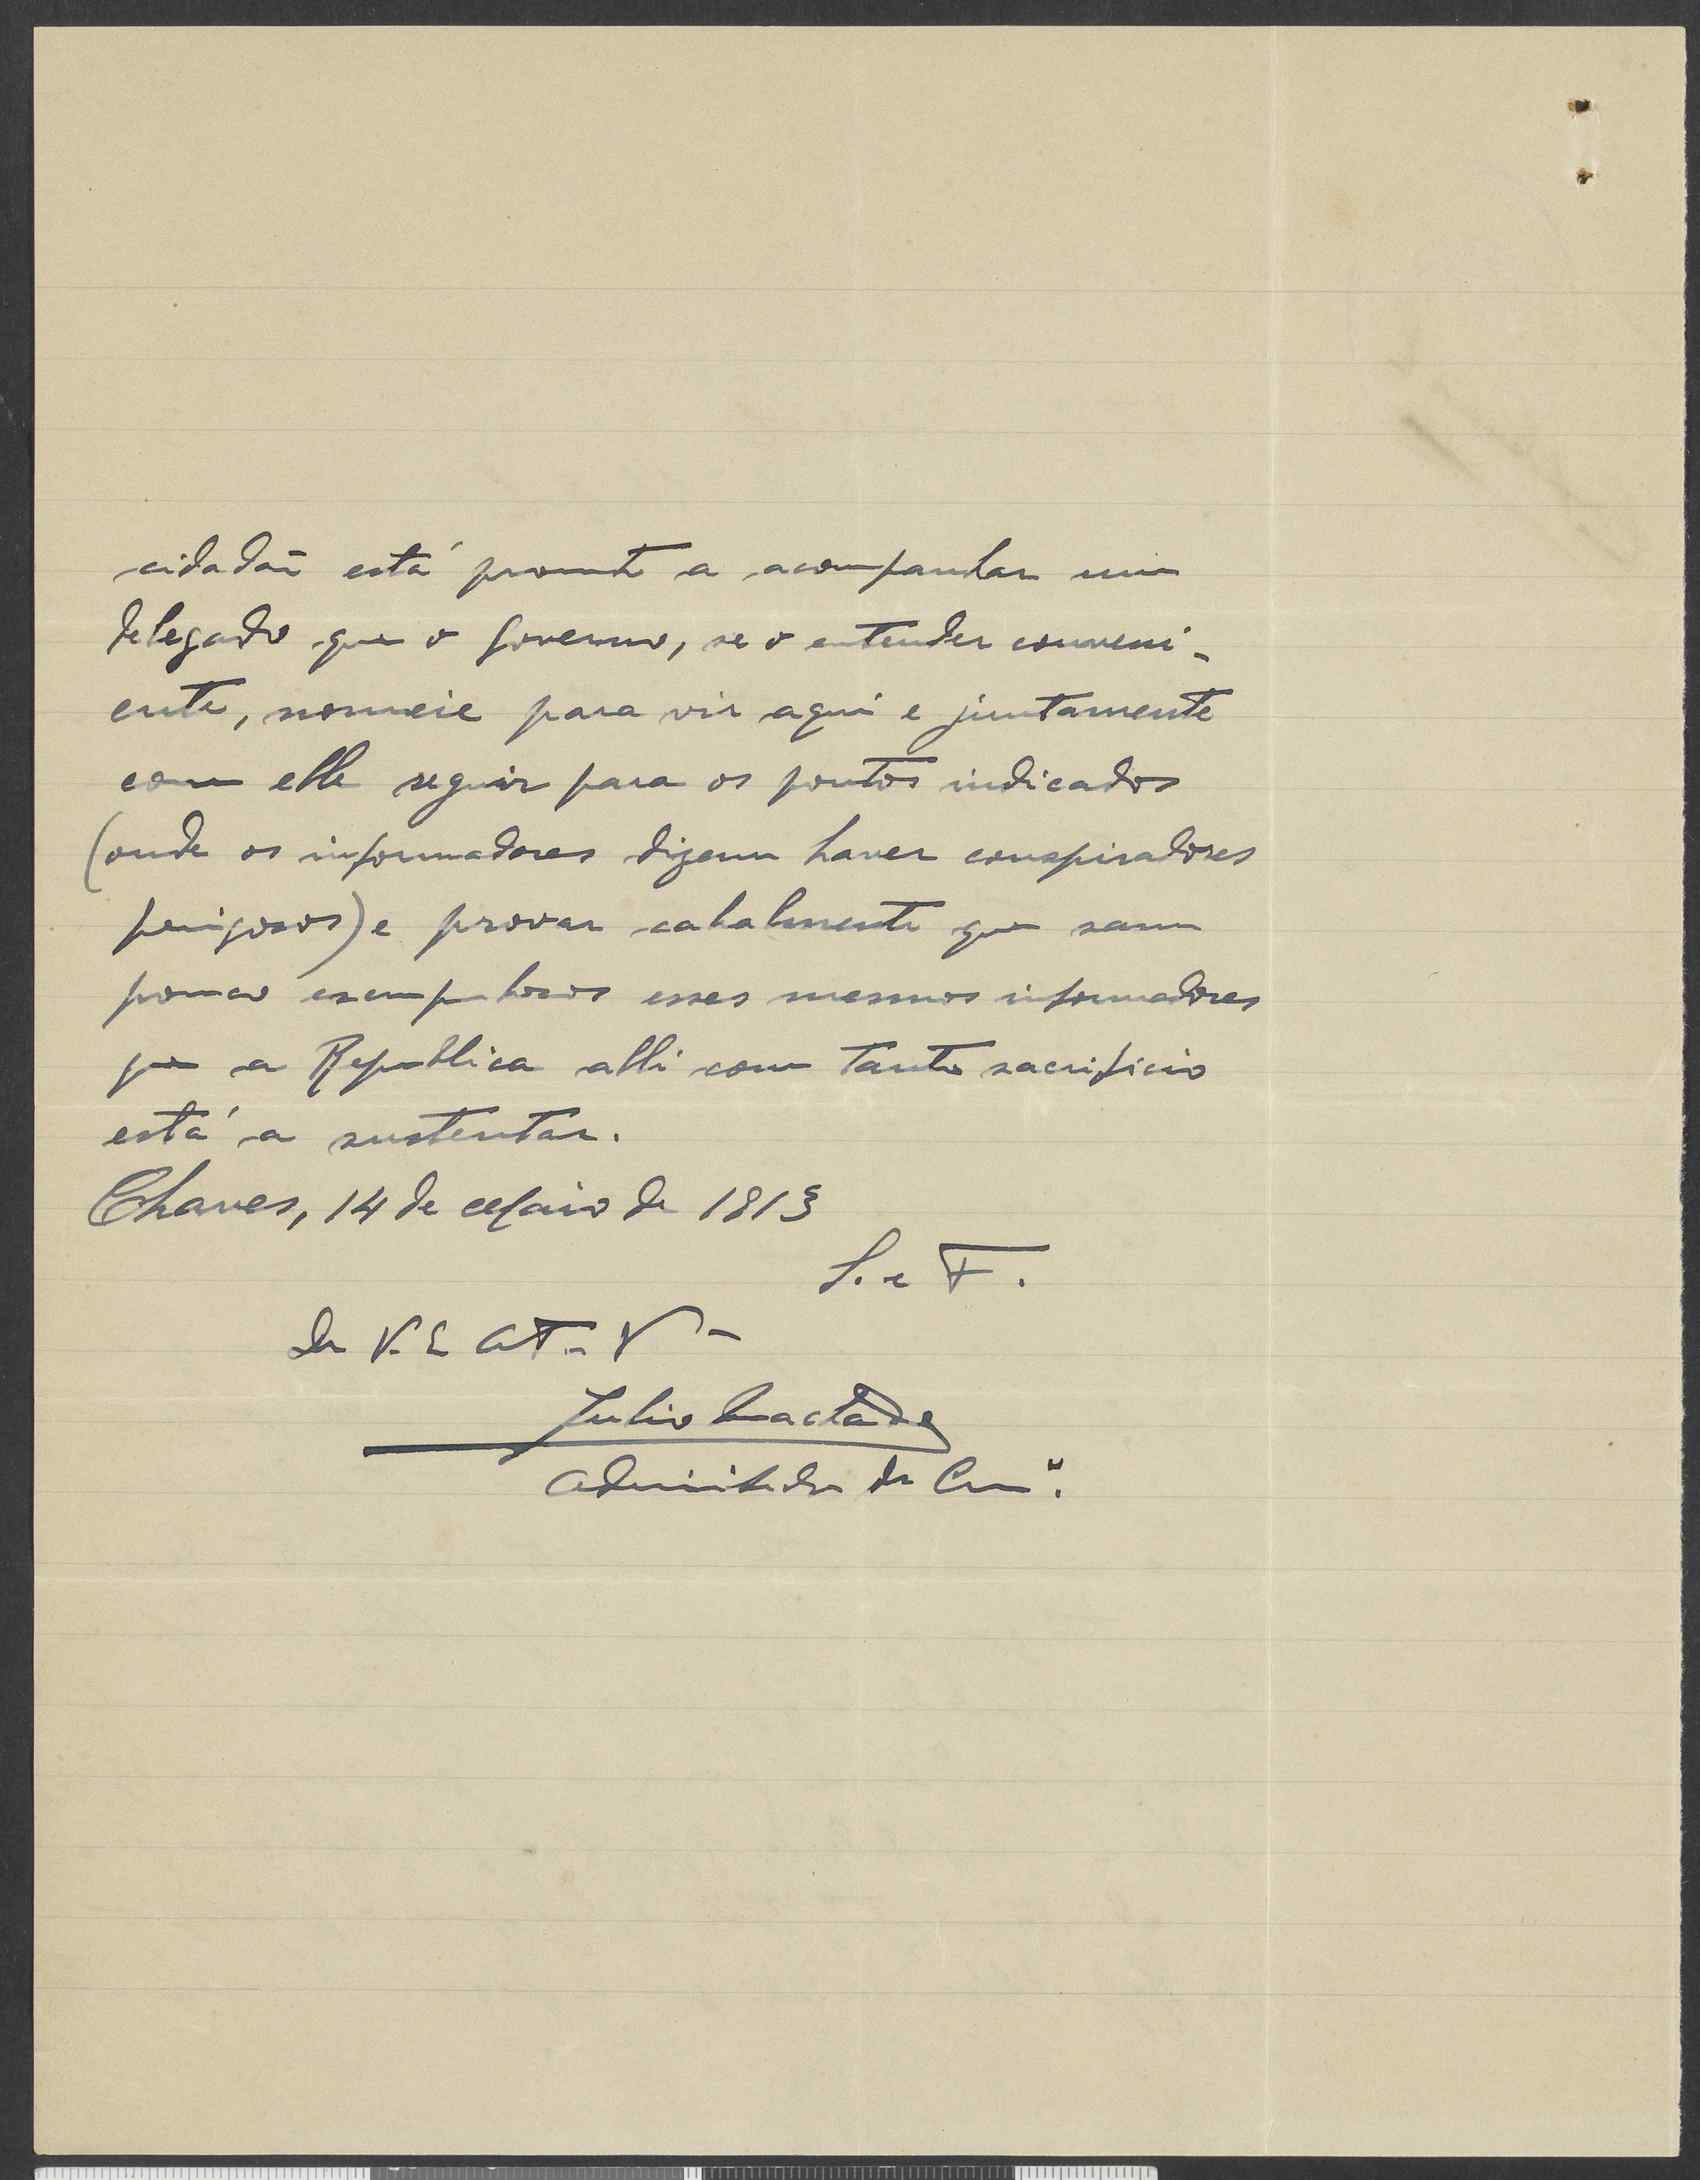 cidadão está prompto a acompanhar um
delegado que o Governo, se o entender conveni-
ente, nomeie para vir aqui e juntamente
com elle seguir para os pontos indicados
(onde os informadores dizem haver conspiradores
perigosos) e provar cabalmente que sam
pouco escrupulosos esses mesmos informadores
que a Republica alli com tanto sacrificio
está a sustentar.
Chaves, 14 de Maio de 1913
S. e F.
De V. E At. V
Julio
de